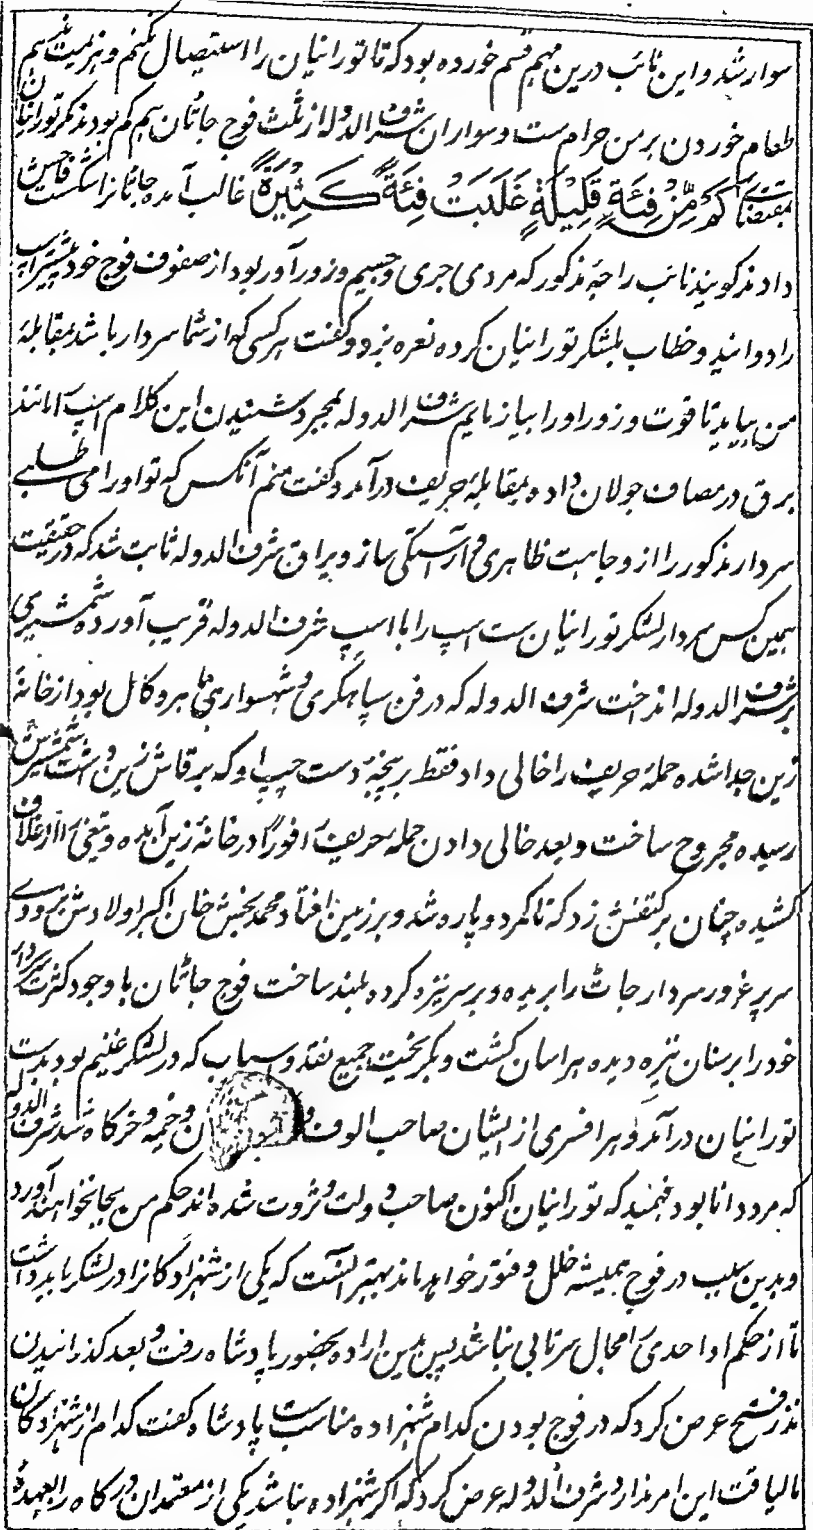 سوار شد و این نائب درین مهم قسم خورده بود که تا تورانیان را استیصال نکنم و هزیمت ندهم
طعام خوردن بر من حرام ست و سواران شرف الدوله از ثلث فوج جاٹان هم کم بودند مگر تورانیان
بمقتضای كَم مِّنْ فِئَةٍ قَلِيْلَةٍ غَلَبَتْ فِئَةً كَثِيْرَةً غالب آمده جاٹان را شکست فاحش
دادند گویند نائب راجهٔ مذکور که مردی جری و جسیم و زور آور بود از صفوف فوج خود پیشتر اسپ
را دوانید و خطاب بلشکر تورانیان کرده نعره بزد و گفت هر کسی که از شما سردار باشد بمقابلهٔ
من بیاید تا قوت و زور او را بیازمایم شرف الدوله بمجرد شنیدن این کلام اسپ را مانند
برق در مصاف جولان داده بمقابلهٔ حریف درآمد و گفت منم آنکس که تو او را می طلبے
سردار مذکور را از وجاهت ظاهری و آراستگی ساز و یراق شرف الدوله ثابت شد که در حقیقت
همین کس سردار لشکر تورانیان ست اسپ را با اسپ شرف الدوله قریب آورده شمشیری
بر شرف الدوله انداخت شرف الدوله که در فن سپاهگری و شهسواری ماهر و کامل بود از خانهٔ
زین جدا شده حملهٔ حریف را خالی داد فقط بر پنجهٔ دست چپ او که بر قاش زین داشت شمشیرش
رسیده مجروح ساخت و بعد خالی دادن حملهٔ حریف را فورًا در خانهٔ زین آمده و تیغی را از غلاف
کشیده چنان بر کتفش زد که تا کمر دو پاره شد و بر زمین افتاد محمد بخش خان اکبر اولادش بزودے
سر پر غرور سردار جاٹ را بریده و بر سر نیزه کرده بلند ساخت فوج جاٹان با وجود کثرت سردار
خود را بر سنان نیزه دیده هراسان گشت و بگریخت جمیع نقد و اسباب که در لشکر غنیم بود بدست
تورانیان درآمد و هر افسری از ایشان صاحب الوف و ن و خیمه و خرگاه شد شرف الدوله
که مرد دانا بود فهمید که تورانیان اکنون صاحب دولت و ثروت شده اند حکم من بجا نخواهند آورد
و بدین سبب در فوج همیشه خلل و فتور خواهد ماند بهتر آنست که یکی از شهزادگان را در لشکر باید داشت
تا از حکم او احدی را مجال سرتابی نباشد پس بدین اراده بحضور پادشاه رفت و بعد گذرانیدن
نذر فتح عرض کرد که در فوج بودن کدام شهزاده مناسب ست پادشاه گفت کدام از شهزادگان
ما لیاقت این امر ندارد شرف الدوله عرض کرد که اگر شهزاده نباشد یکی از معتمدان درگاه را بعهدهٔ